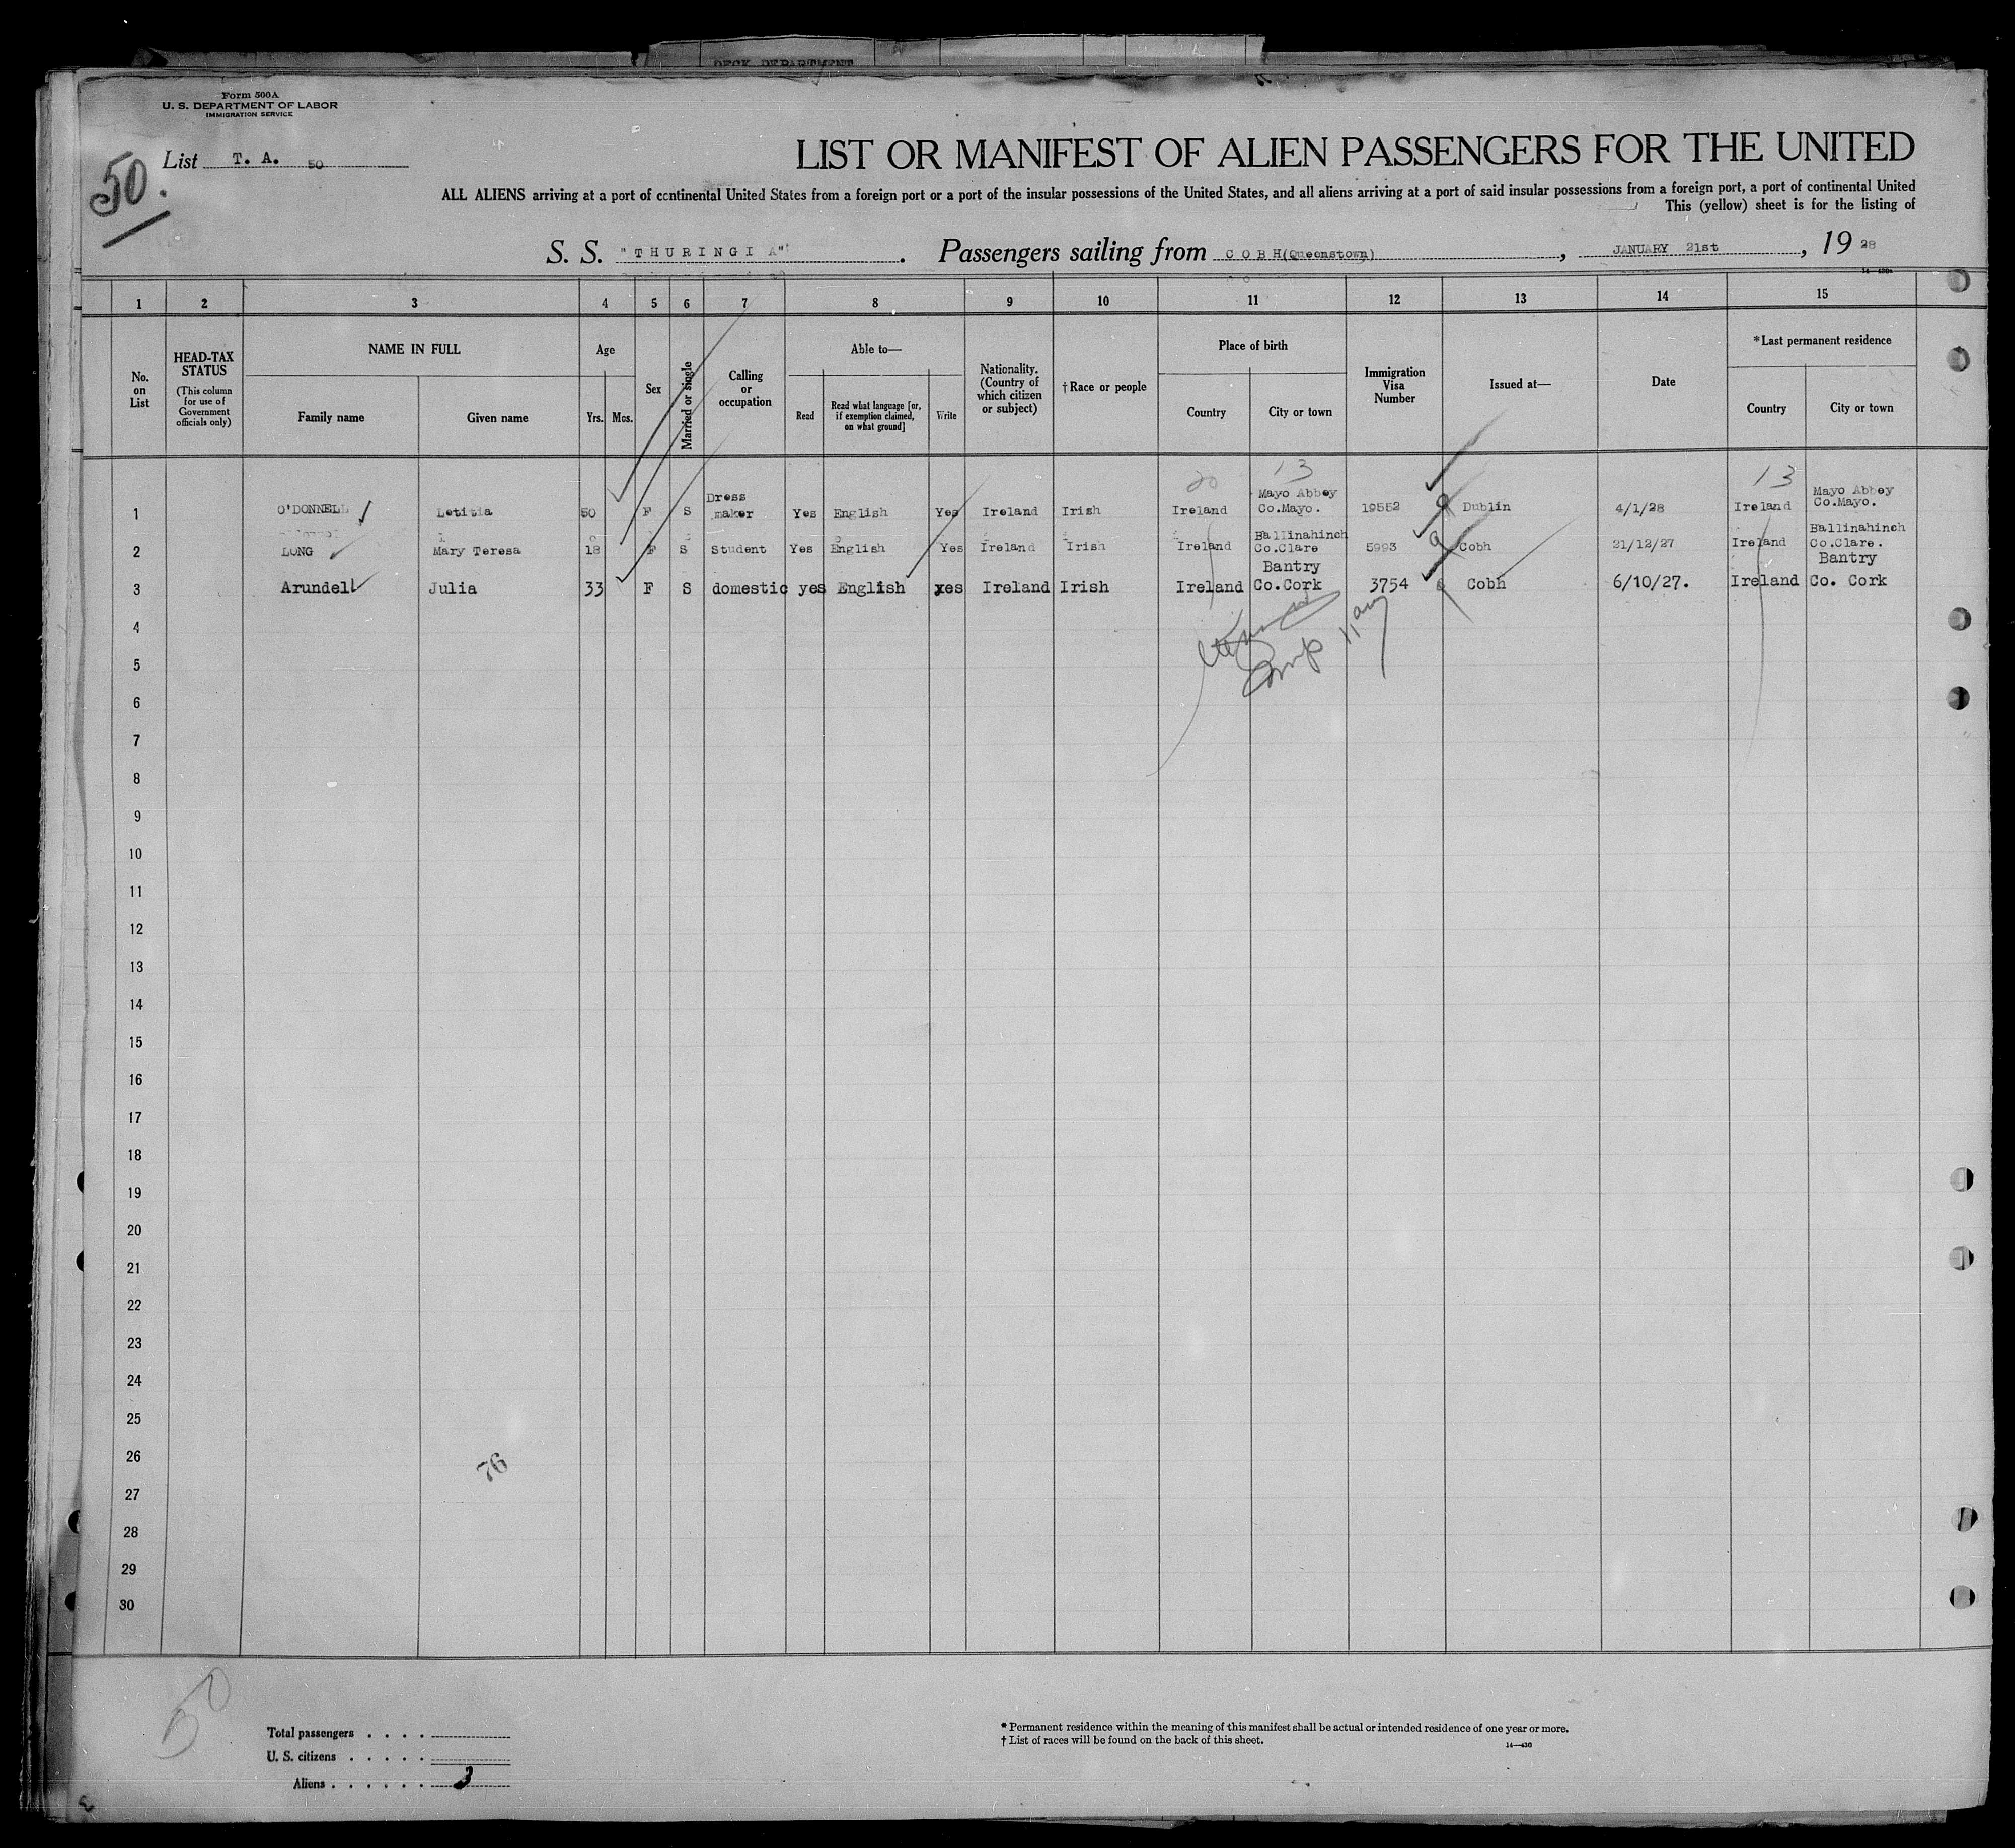 DECK DEPARTMENT
Form 500A
U. S. DEPARTMENT OF LABOR
IMMIGRATION SERVICE
50.
List T. A. 50
LIST OR MANIFEST OF ALIEN PASSENGERS FOR THE UNITED
ALL ALIENS arriving at a port of continental United States from a foreign port or a port of the insular possessions of the United States, and all aliens arriving at a port of said insular possessions from a foreign port, a port of continental United
This (yellow) sheet is for the listing of
S. S. "THURINGIA". Passengers sailing from COBH(Queenstown), JANUARY 21st, 1928
1 2 3 4 5 6 7 8 9 10 11 12 13 14 15
No. on List
HEAD-TAX STATUS
(This column for use of Government officials only)
NAME IN FULL
Family name
Given name
Age
Yrs.
Mos.
Sex
Married or single
Calling or occupation
Able to—
Read
Read what language [or, if exemption claimed, on what ground]
Write
Nationality. (Country of which citizen or subject)
†Race or people
Place of birth
Country
City or town
Immigration Visa Number
Issued at—
Date
*Last permanent residence
Country
City or town
20 13 13
1 O'DONNELL Letitia 50 F S Dress maker Yes English Yes Ireland Irish Ireland Mayo Abbey Co.Mayo. 19552 Dublin 4/1/28 Ireland Mayo Abbey Co.Mayo.
2 LONG Mary Teresa 18 F S Student Yes English Yes Ireland Irish Ireland Ballinahinch Co.Clare 5993 Cobh 21/12/27 Ireland Ballinahinch Co.Clare.
3 Arundell Julia 33 F S domestic yes English yes Ireland Irish Ireland Bantry Co.Cork 3754 Cobh 6/10/27. Ireland Bantry Co. Cork
4
5
6
7
8
9
10
11
12
13
14
15
16
17
18
19
20
21
22
23
24
25
26
27
28
29
30
76
50
Total passengers . . . .
U. S. citizens . . . . .
Aliens . . . . . . 3
* Permanent residence within the meaning of this manifest shall be actual or intended residence of one year or more.
† List of races will be found on the back of this sheet.
14—430